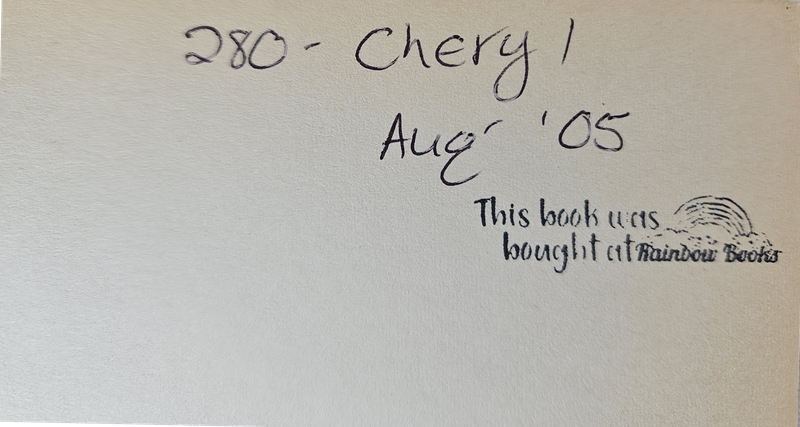 280- Cheryl
Aug '05
This book was
bought at Rainbow Books